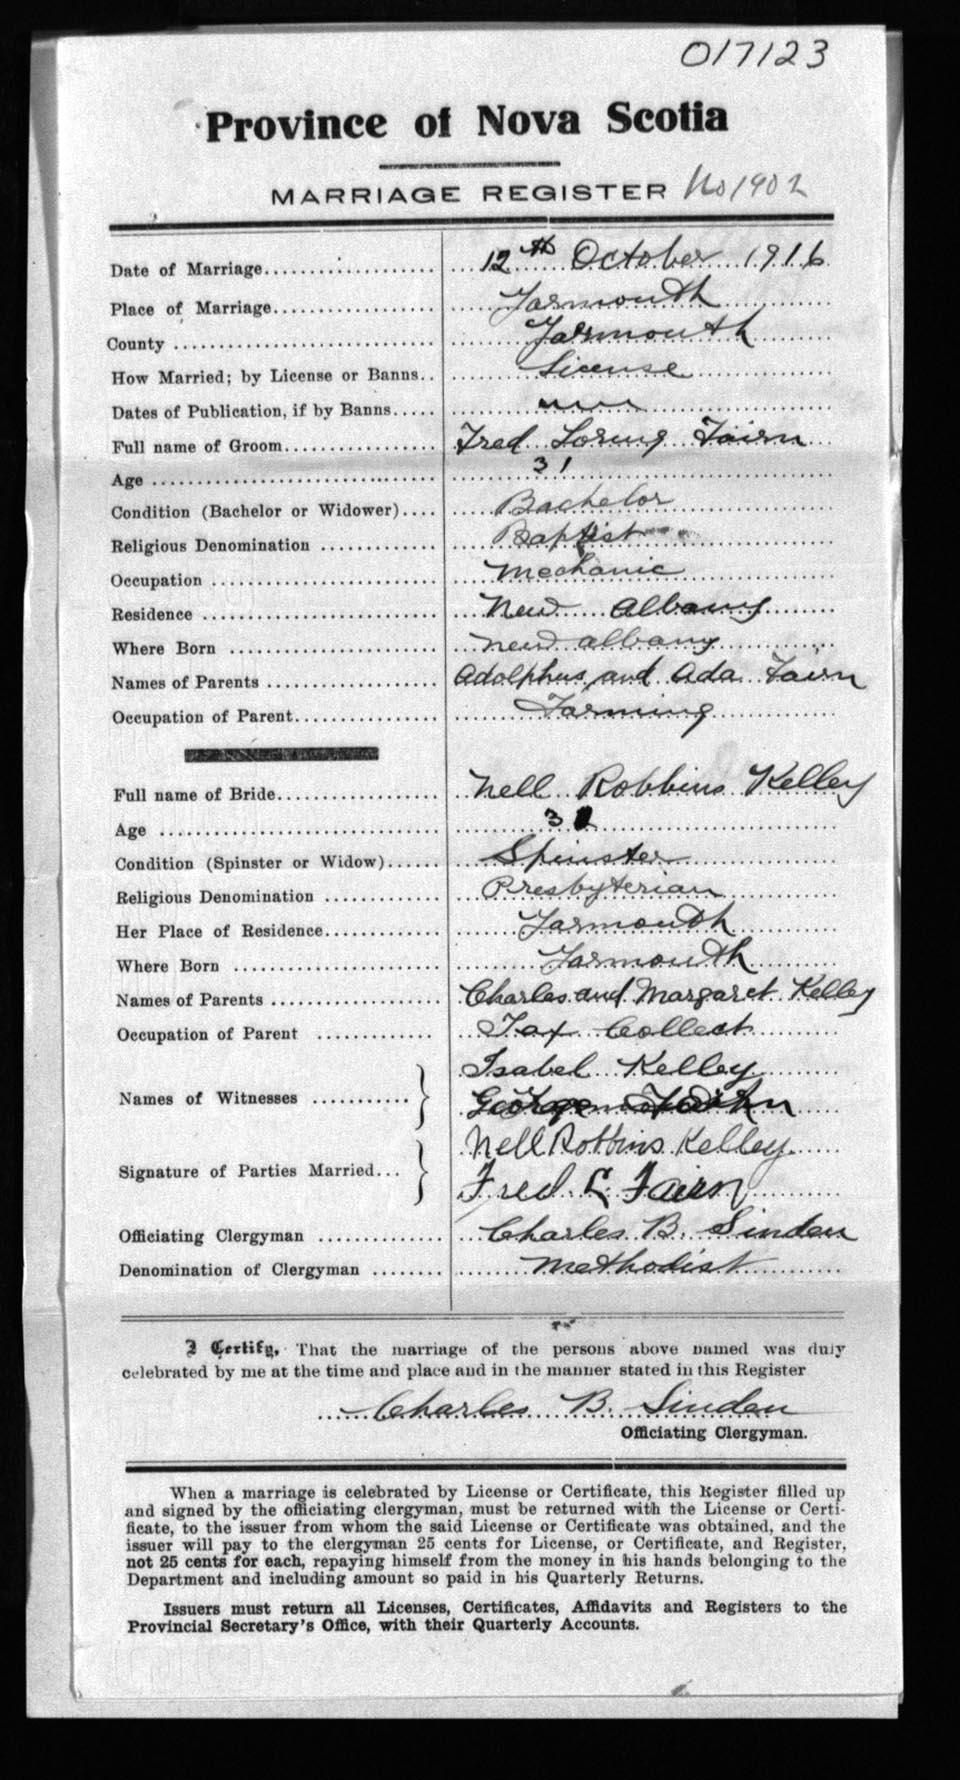 017123
Province of Nova Scotia
MARRIAGE REGISTER No 1902
Date of Marriage 12th October 1916
Place of Marriage Yarmouth
County Yarmouth
How Married; by License or Banns License
Dates of Publication, if by Banns
Full name of Groom Fred Loring Fairn
Age 31
Condition (Bachelor or Widower) Bachelor
Religious Denomination Baptist
Occupation Mechanic
Residence New Albany
Where Born New Albany
Names of Parents Adolphus and Ada Fairn
Occupation of Parent Farming
Full name of Bride Nell Robbins Kelley
Age
Condition (Spinster or Widow) Spinster
Religious Denomination Presbyterian
Her Place of Residence Yarmouth
Where Born Yarmouth
Names of Parents Charles and Margaret Kelley
Occupation of Parent Tax Collect
Isabel Kelley
Names of Witnesses
Nell Robbins Kelley
Signature of Parties Married
Fred L Fairn
Officiating Clergyman Charles B. Sinden
Denomination of Clergyman Methodist
I Certify, That the marriage of the persons above named was duly
celebrated by me at the time and place and in the manner stated in this Register
Charles B. Sinden
Officiating Clergyman.
When a marriage is celebrated by License or Certificate, this Register filled up
and signed by the officiating clergyman, must be returned with the License or Certi-
ficate, to the issuer from whom the said License or Certificate was obtained, and the
issuer will pay to the clergyman 25 cents for License, or Certificate, and Register,
not 25 cents for each, repaying himself from the money in his hands belonging to the
Department and including amount so paid in his Quarterly Returns.
Issuers must return all Licenses, Certificates, Affidavits and Registers to the
Provincial Secretary's Office, with their Quarterly Accounts.